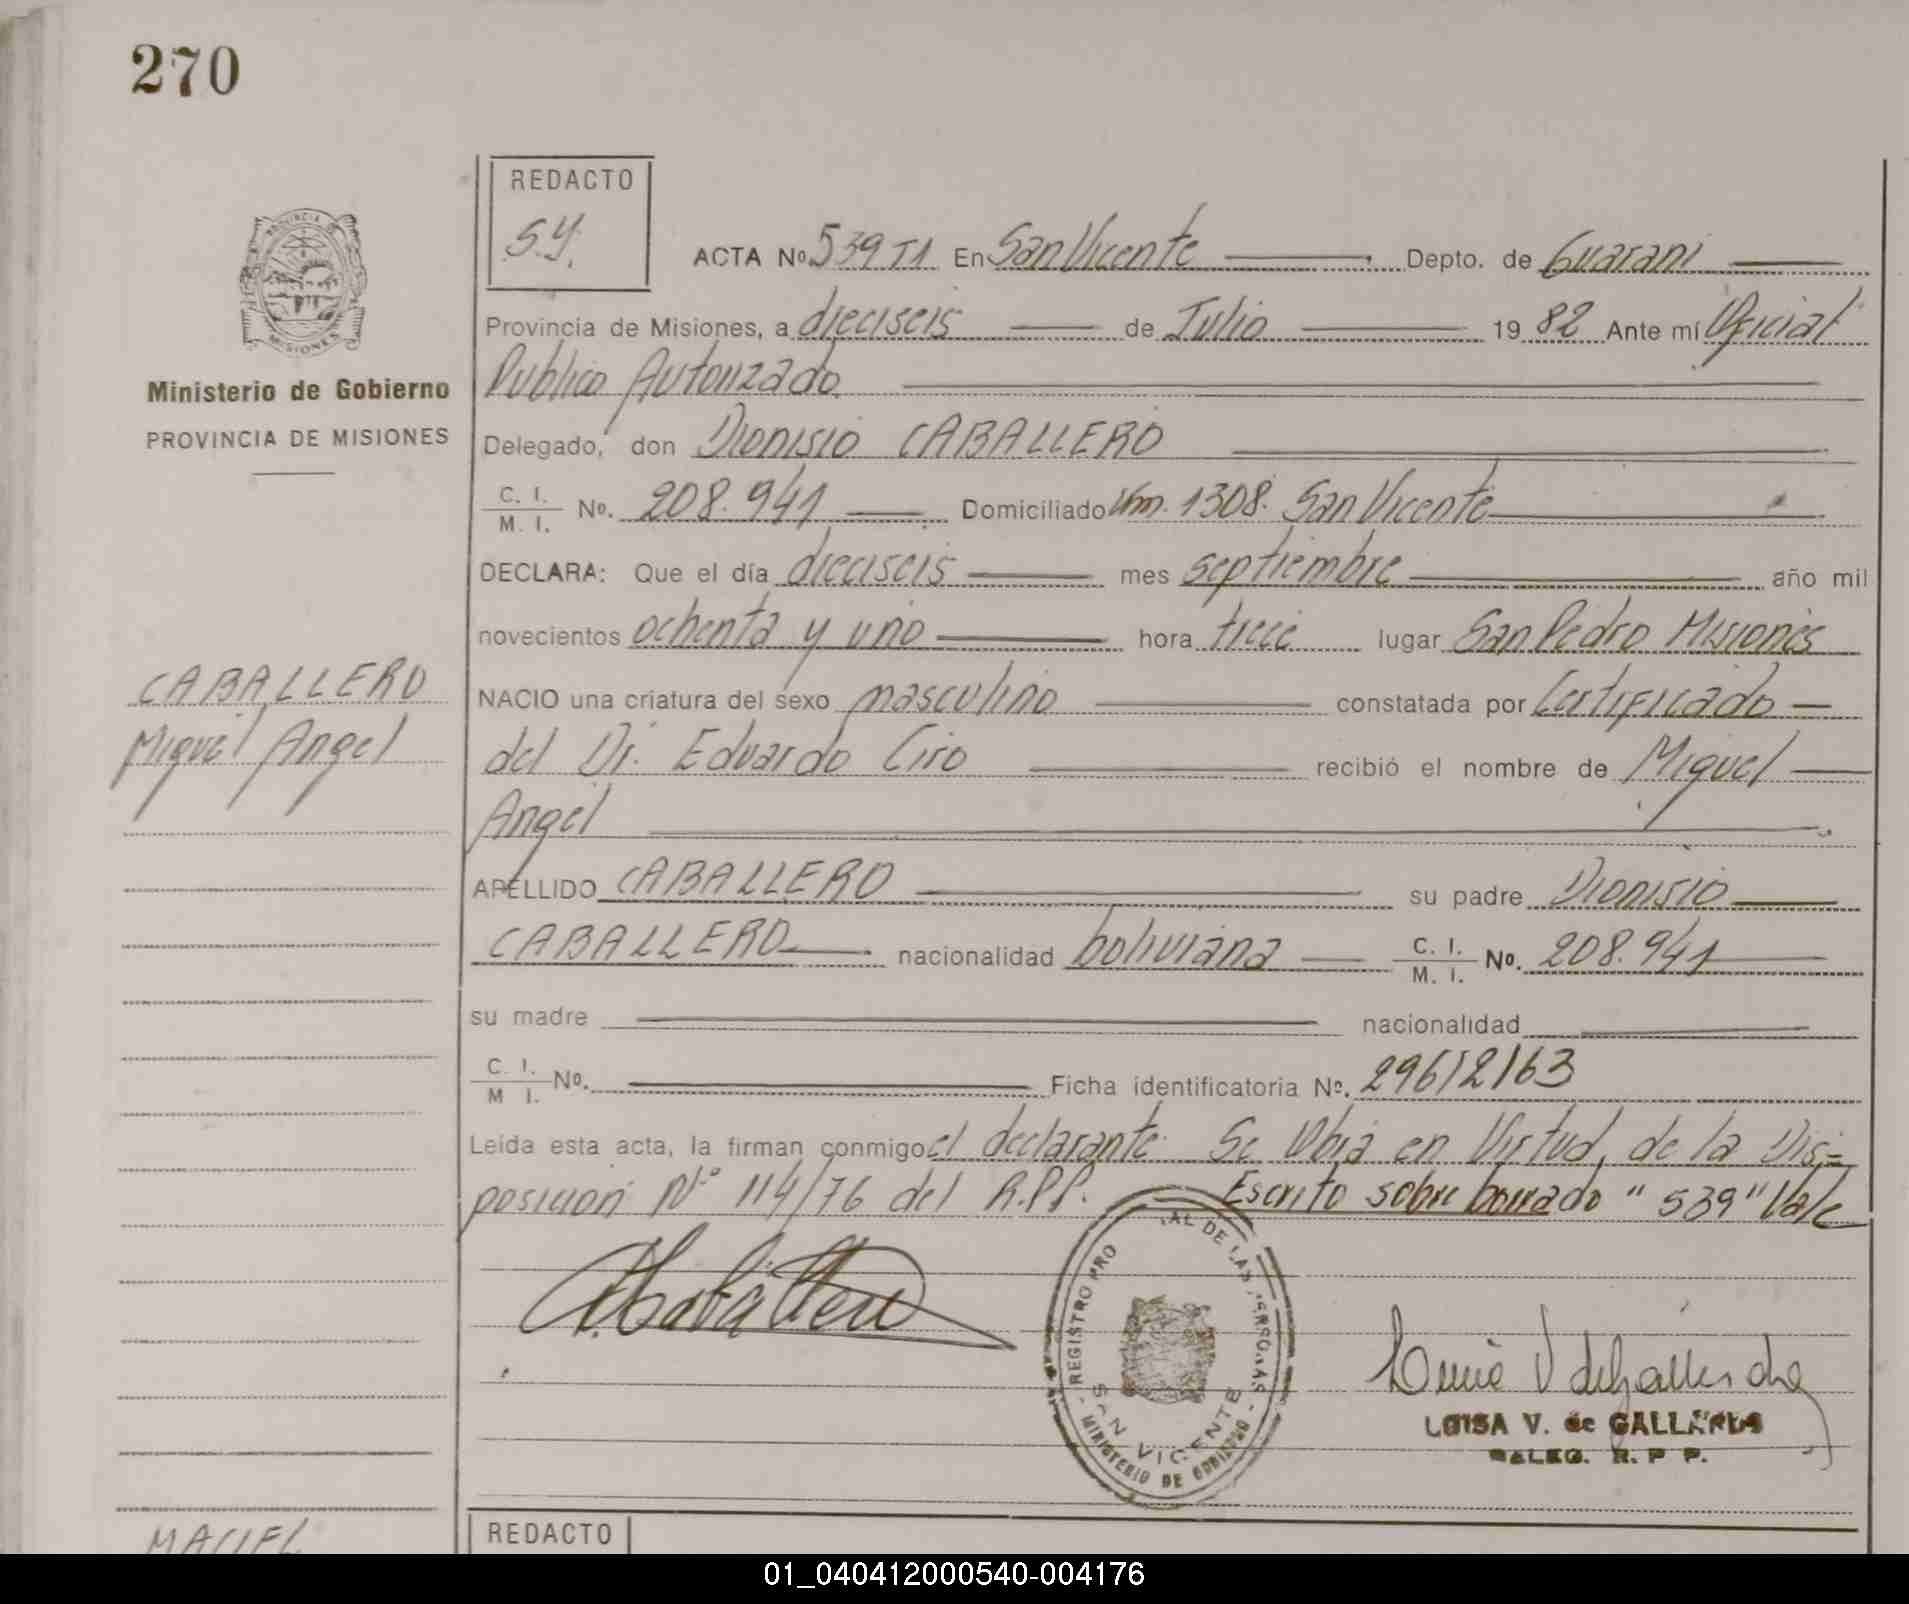 270
REDACTO
S.Y.
ACTA Nº 539 T1 En San Vicente Depto. de Guarani
Provincia de Misiones, a dieciseis de Julio 19 82 Ante mí Oficial
Publico Autorizado
Ministerio de Gobierno
PROVINCIA DE MISIONES
Delegado, don Dionisio CABALLERO
C. I. / M. I. No. 208.941 Domiciliado Km. 1308. San Vicente
DECLARA: Que el día dieciseis mes septiembre año mil
novecientos ochenta y uno hora trece lugar San Pedro Misiones
CABALLERO
Miguel Angel
NACIO una criatura del sexo masculino constatada por Certificado
del Dr. Eduardo Ciro recibió el nombre de Miguel
Angel
APELLIDO CABALLERO su padre Dionisio
CABALLERO nacionalidad boliviana C. I. / M. I. No. 208.941
su madre nacionalidad
C. I. / M I. No. Ficha identificatoria Nº. 29612163
Leída esta acta, la firman conmigo el declarante. Se Obra en Virtud de la Dis=
posición Nº 114/76 del R.P.P. Escrito sobre borrado "539" Vale
REGISTRO PRO AL DE LAS PERSONAS
SAN VICENTE
MINISTERIO DE GOBIERNO
LUISA V. de GALLARDO
DELEG. R. P P.
MACIEL
REDACTO
01_040412000540-004176